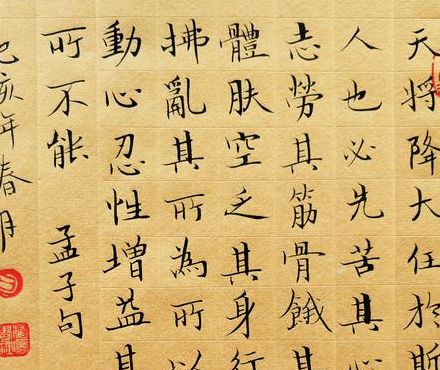 天将降大任於斯
人也必先苦其心
志勞其筋骨餓其
體膚空乏其身行
拂亂其所為所以
動心忍性增益其
所不能 孟子句
己亥年春月